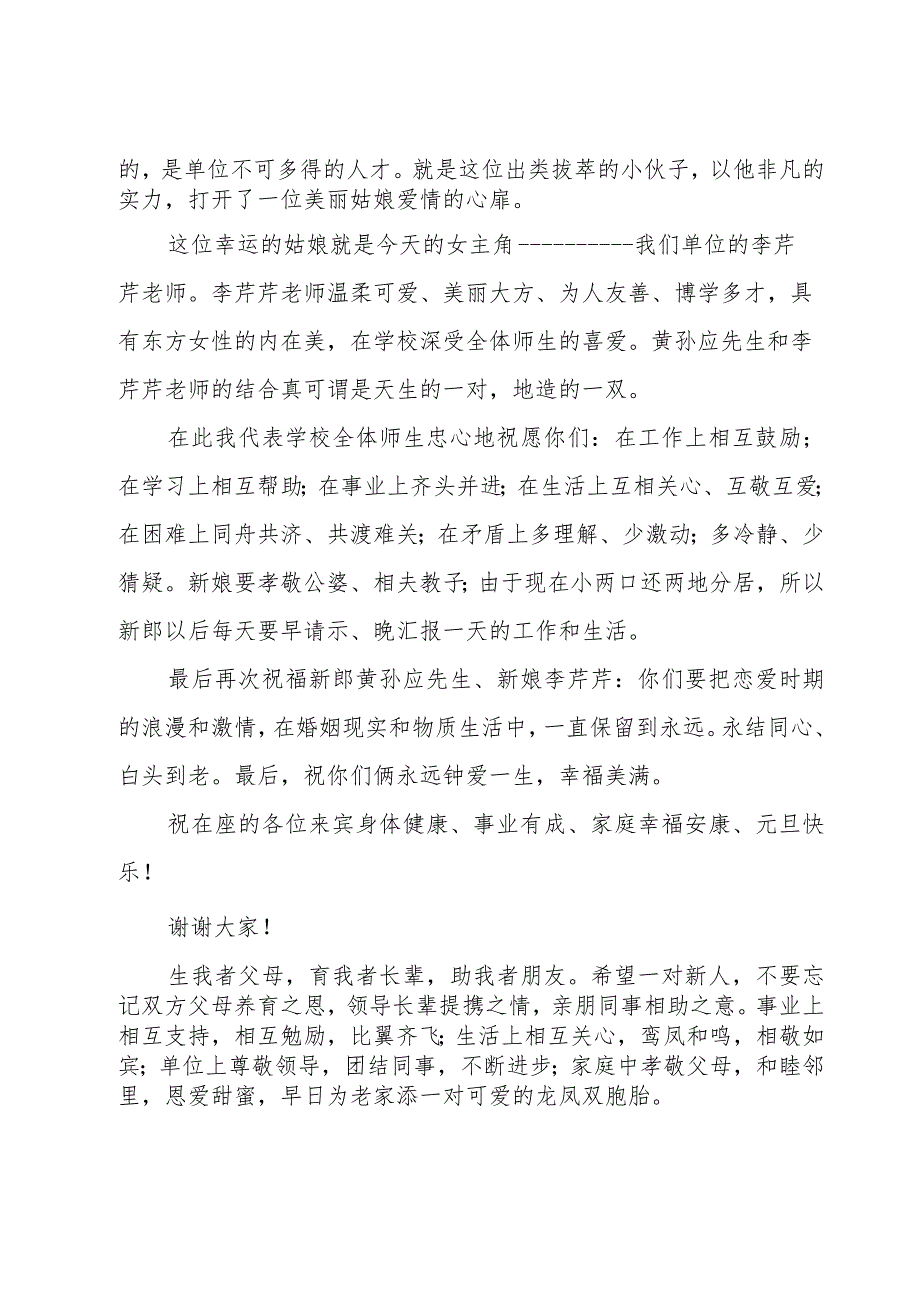 的，是单位不可多得的人才。就是这位出类拔萃的小伙子，以他非凡的
实力，打开了一位美丽姑娘爱情的心扉。
这位幸运的姑娘就是今天的女主角----------我们单位的李芹
芹老师。李芹芹老师温柔可爱、美丽大方、为人友善、博学多才，具
有东方女性的内在美，在学校深受全体师生的喜爱。黄孙应先生和李
芹芹老师的结合真可谓是天生的一对，地造的一双。
在此我代表学校全体师生忠心地祝愿你们：在工作上相互鼓励；
在学习上相互帮助；在事业上齐头并进；在生活上互相关心、互敬互爱；
在困难上同舟共济、共渡难关；在矛盾上多理解、少激动；多冷静、少
猜疑。新娘要孝敬公婆、相夫教子；由于现在小两口还两地分居，所以
新郎以后每天要早请示、晚汇报一天的工作和生活。
最后再次祝福新郎黄孙应先生、新娘李芹芹：你们要把恋爱时期
的浪漫和激情，在婚姻现实和物质生活中，一直保留到永远。永结同心、
白头到老。最后，祝你们俩永远钟爱一生，幸福美满。
祝在座的各位来宾身体健康、事业有成、家庭幸福安康、元旦快
乐！
谢谢大家！
生我者父母，育我者长辈，助我者朋友。希望一对新人，不要忘
记双方父母养育之恩，领导长辈提携之情，亲朋同事相助之意。事业上
相互支持，相互勉励，比翼齐飞；生活上相互关心，鸾凤和鸣，相敬如
宾；单位上尊敬领导，团结同事，不断进步；家庭中孝敬父母，和睦邻
里，恩爱甜蜜，早日为老家添一对可爱的龙凤双胞胎。